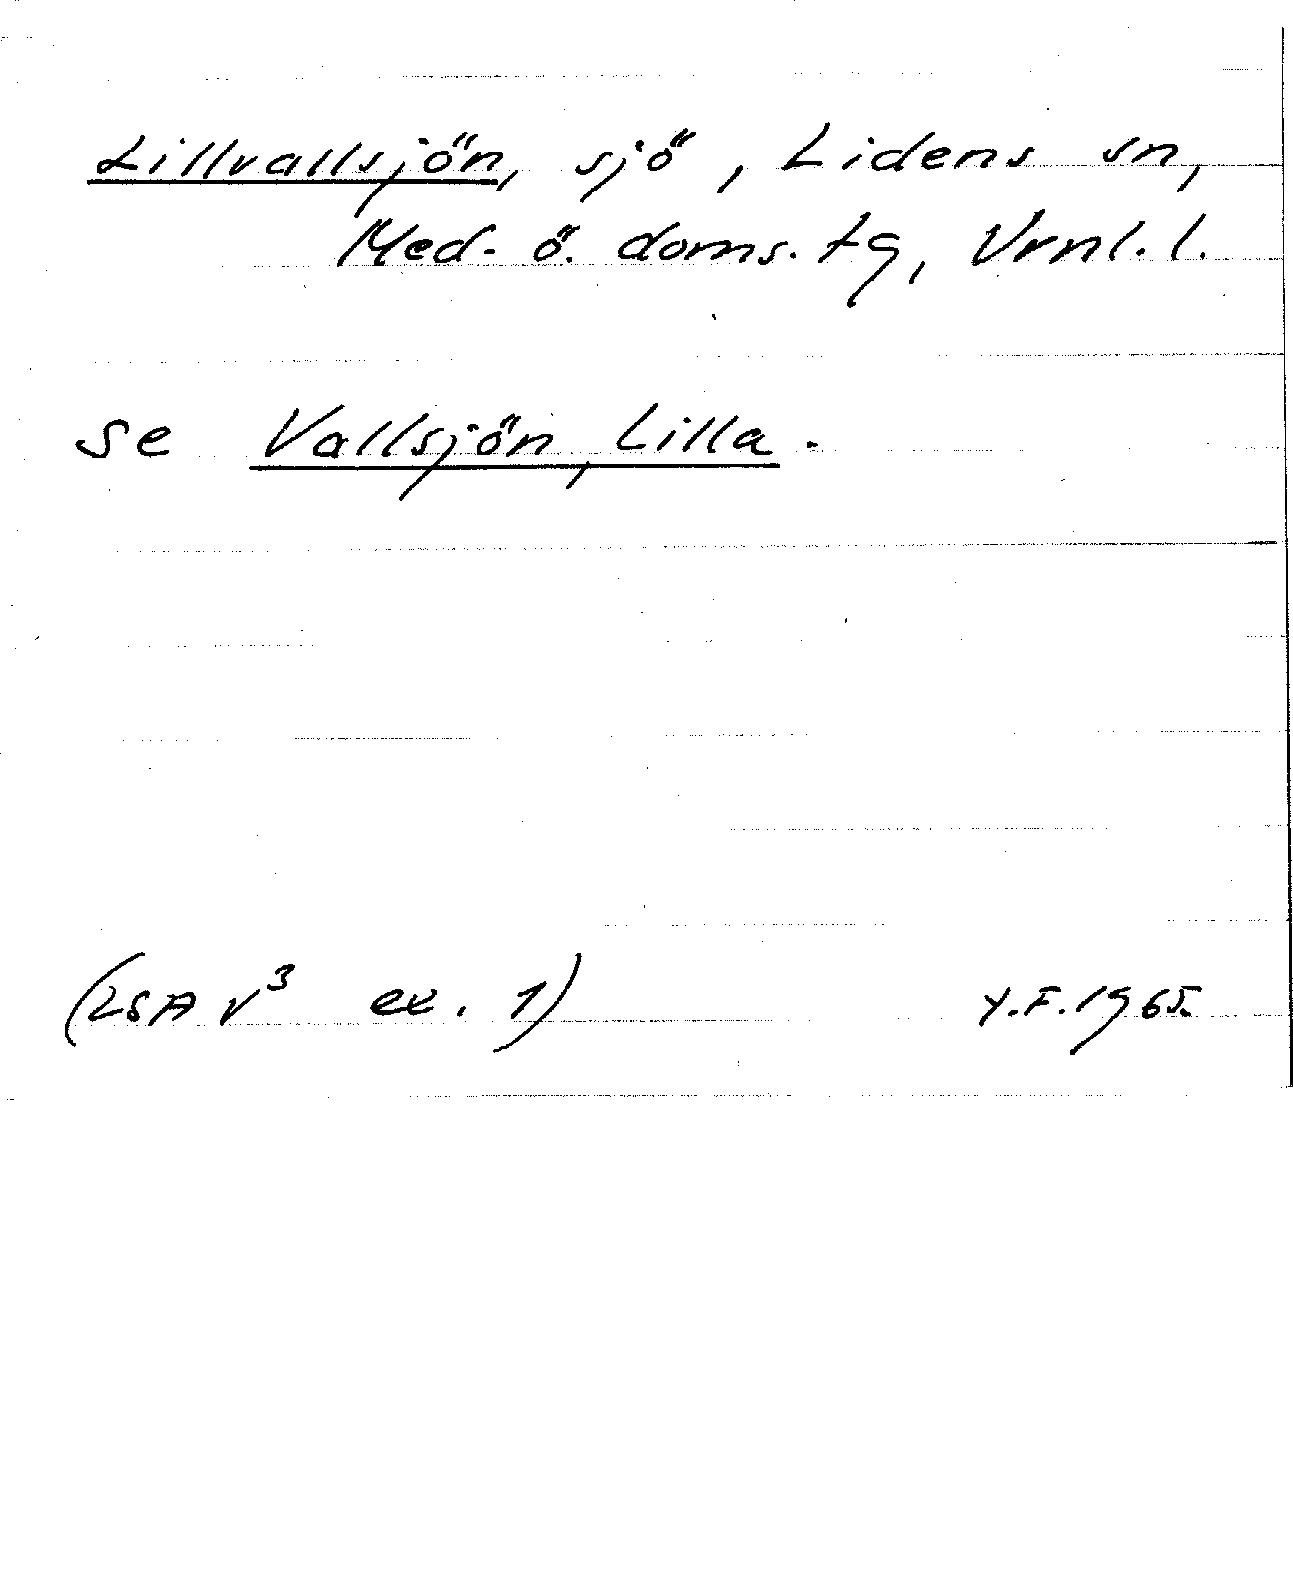 Lillvallsjön, sjö, Lidens sn,
Med. ö. doms. tg, Vrnl. l.
se Vallsjön, Lilla.
(LSA V³ ex. 1) Y.F. 1965.